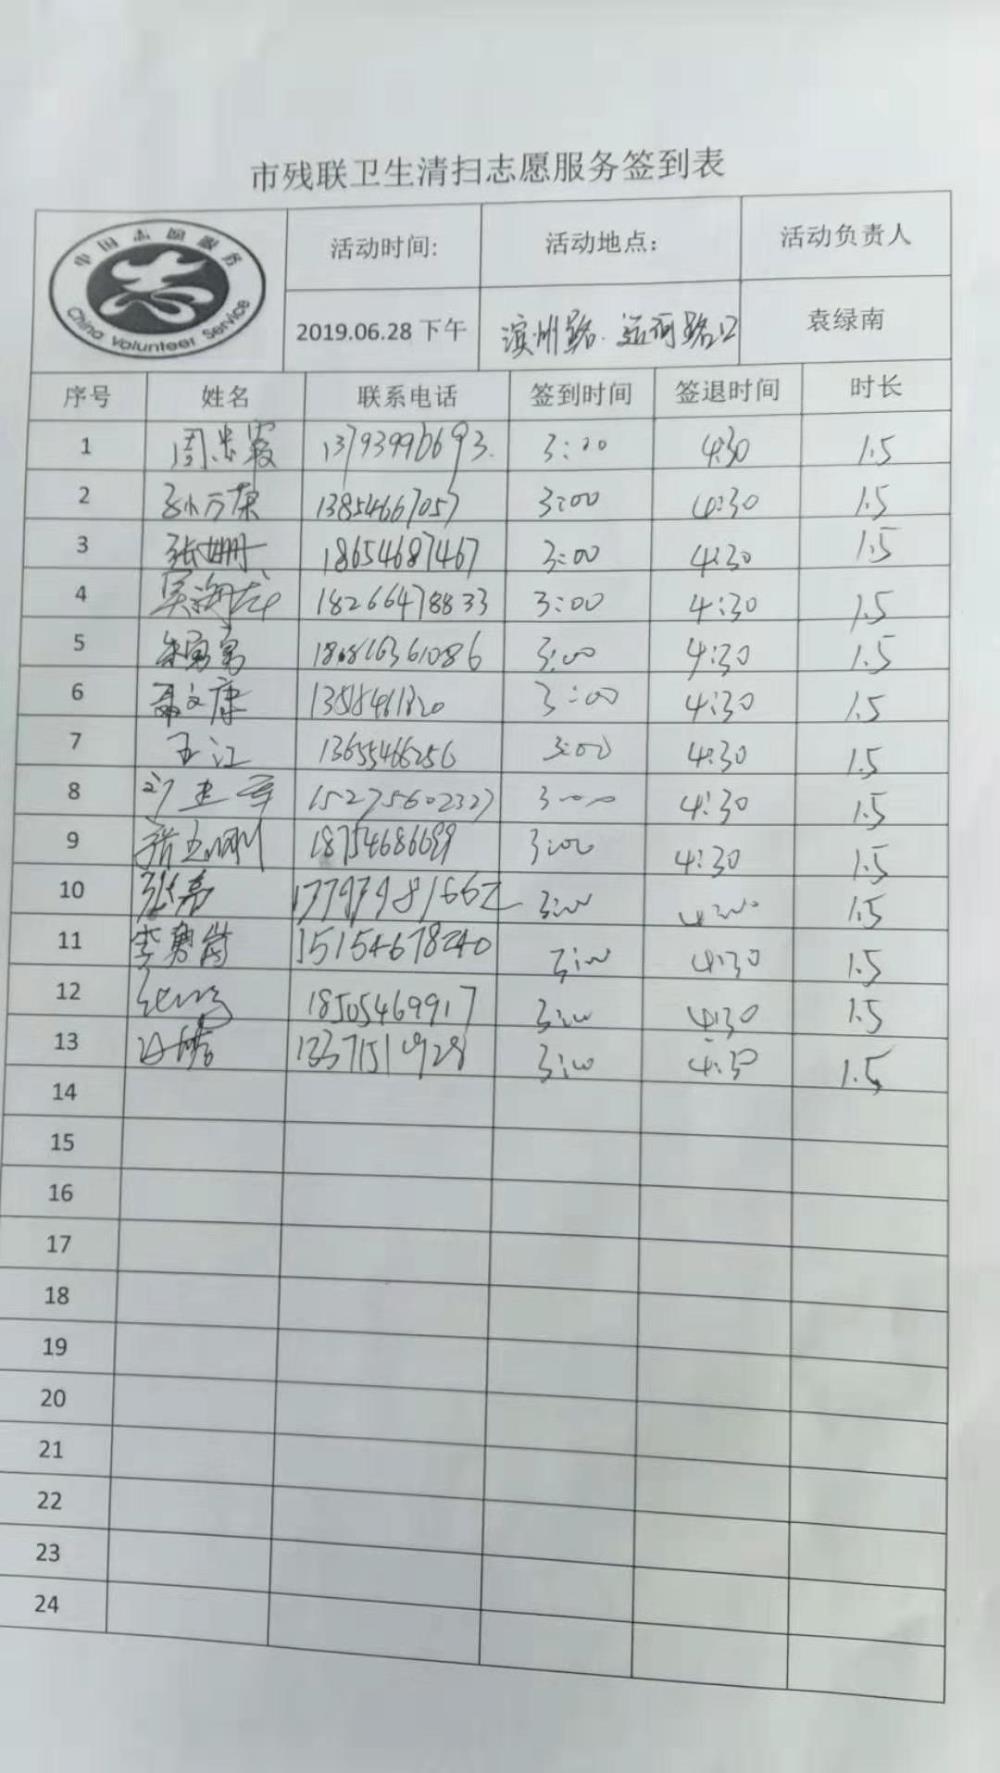 市残联卫生清扫志愿服务签到表
中国志愿服务
China Volunteer Service
活动时间: 活动地点: 活动负责人
2019.06.28 下午 滨州路.运河路口 袁绿南
序号 姓名 联系电话 签到时间 签退时间 时长
1 周忠霞 13793990693. 3:00 4:30 1.5
2 孙万荣 13854667057 3:00 4:30 1.5
3 张姗 18654687467 3:00 4:30 1.5
4 18266478833 3:00 4:30 1.5
5 3:00 4:30 1.5
6 3:00 4:30 1.5
7 王江 13655466256 3:00 4:30 1.5
8 15275602327 3:00 4:30 1.5
9 18754686699 3:00 4:30 1.5
10 张亮 17797981662 3:00 4:30 1.5
11 15154678240 3:00 4:30 1.5
12 18505469917 3:00 4:30 1.5
13 3:00 4:30 1.5
14
15
16
17
18
19
20
21
22
23
24